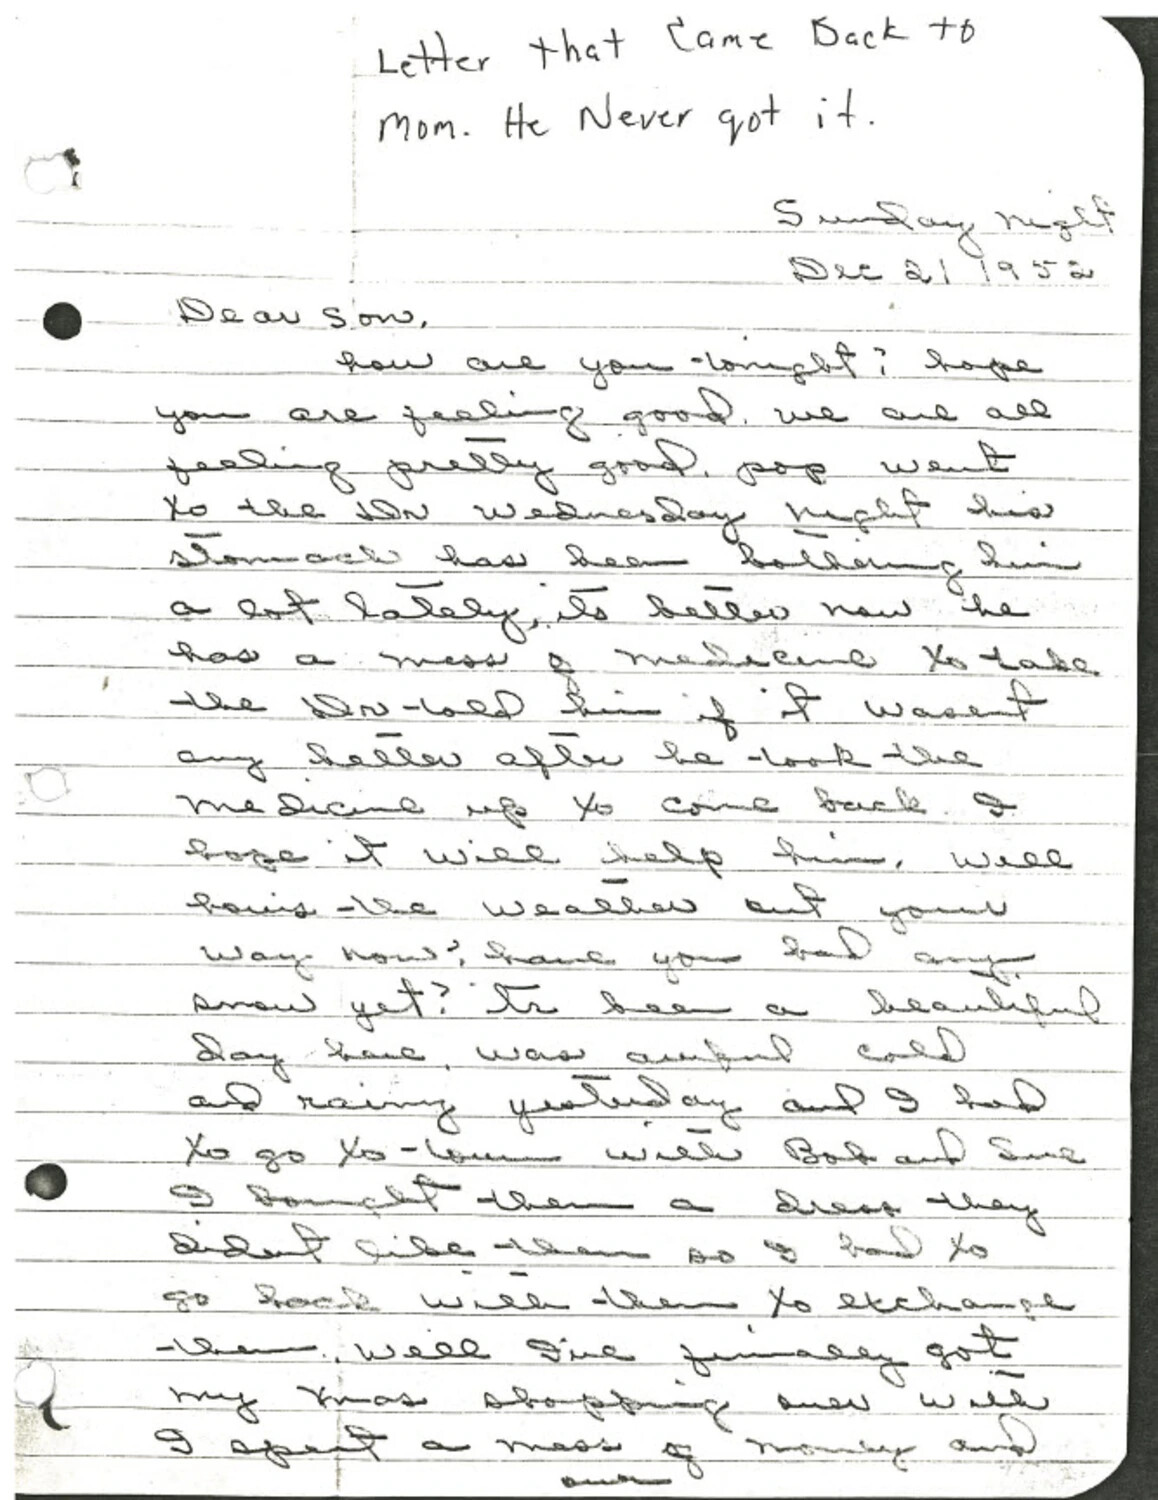 Letter that Came Back to
Mom. He Never got it.
Sunday night
Dec 21 1952
Dear Son,
how are you tonight? hope
you are feeling good. we are all
feeling pretty good. pop went
to the Dr wednesday night his
stomach has been bothering him
a lot lately, its better now he
has a mess of medicine to take
the Dr told him if it wasent
any better after he took the
medicine up to come back. I
hope it will help him. Well
hows the weather out your
way now? have you had any
snow yet? Its been a beautiful
day here, was awful cold
and rainy yesterday and I had
to go to town with Bob and Sue
I bought them a dress they
dident like them so I had to
go back with them to exchange
them. Well I've finally got
my Xmas shopping over with
I spent a mess of money and
over